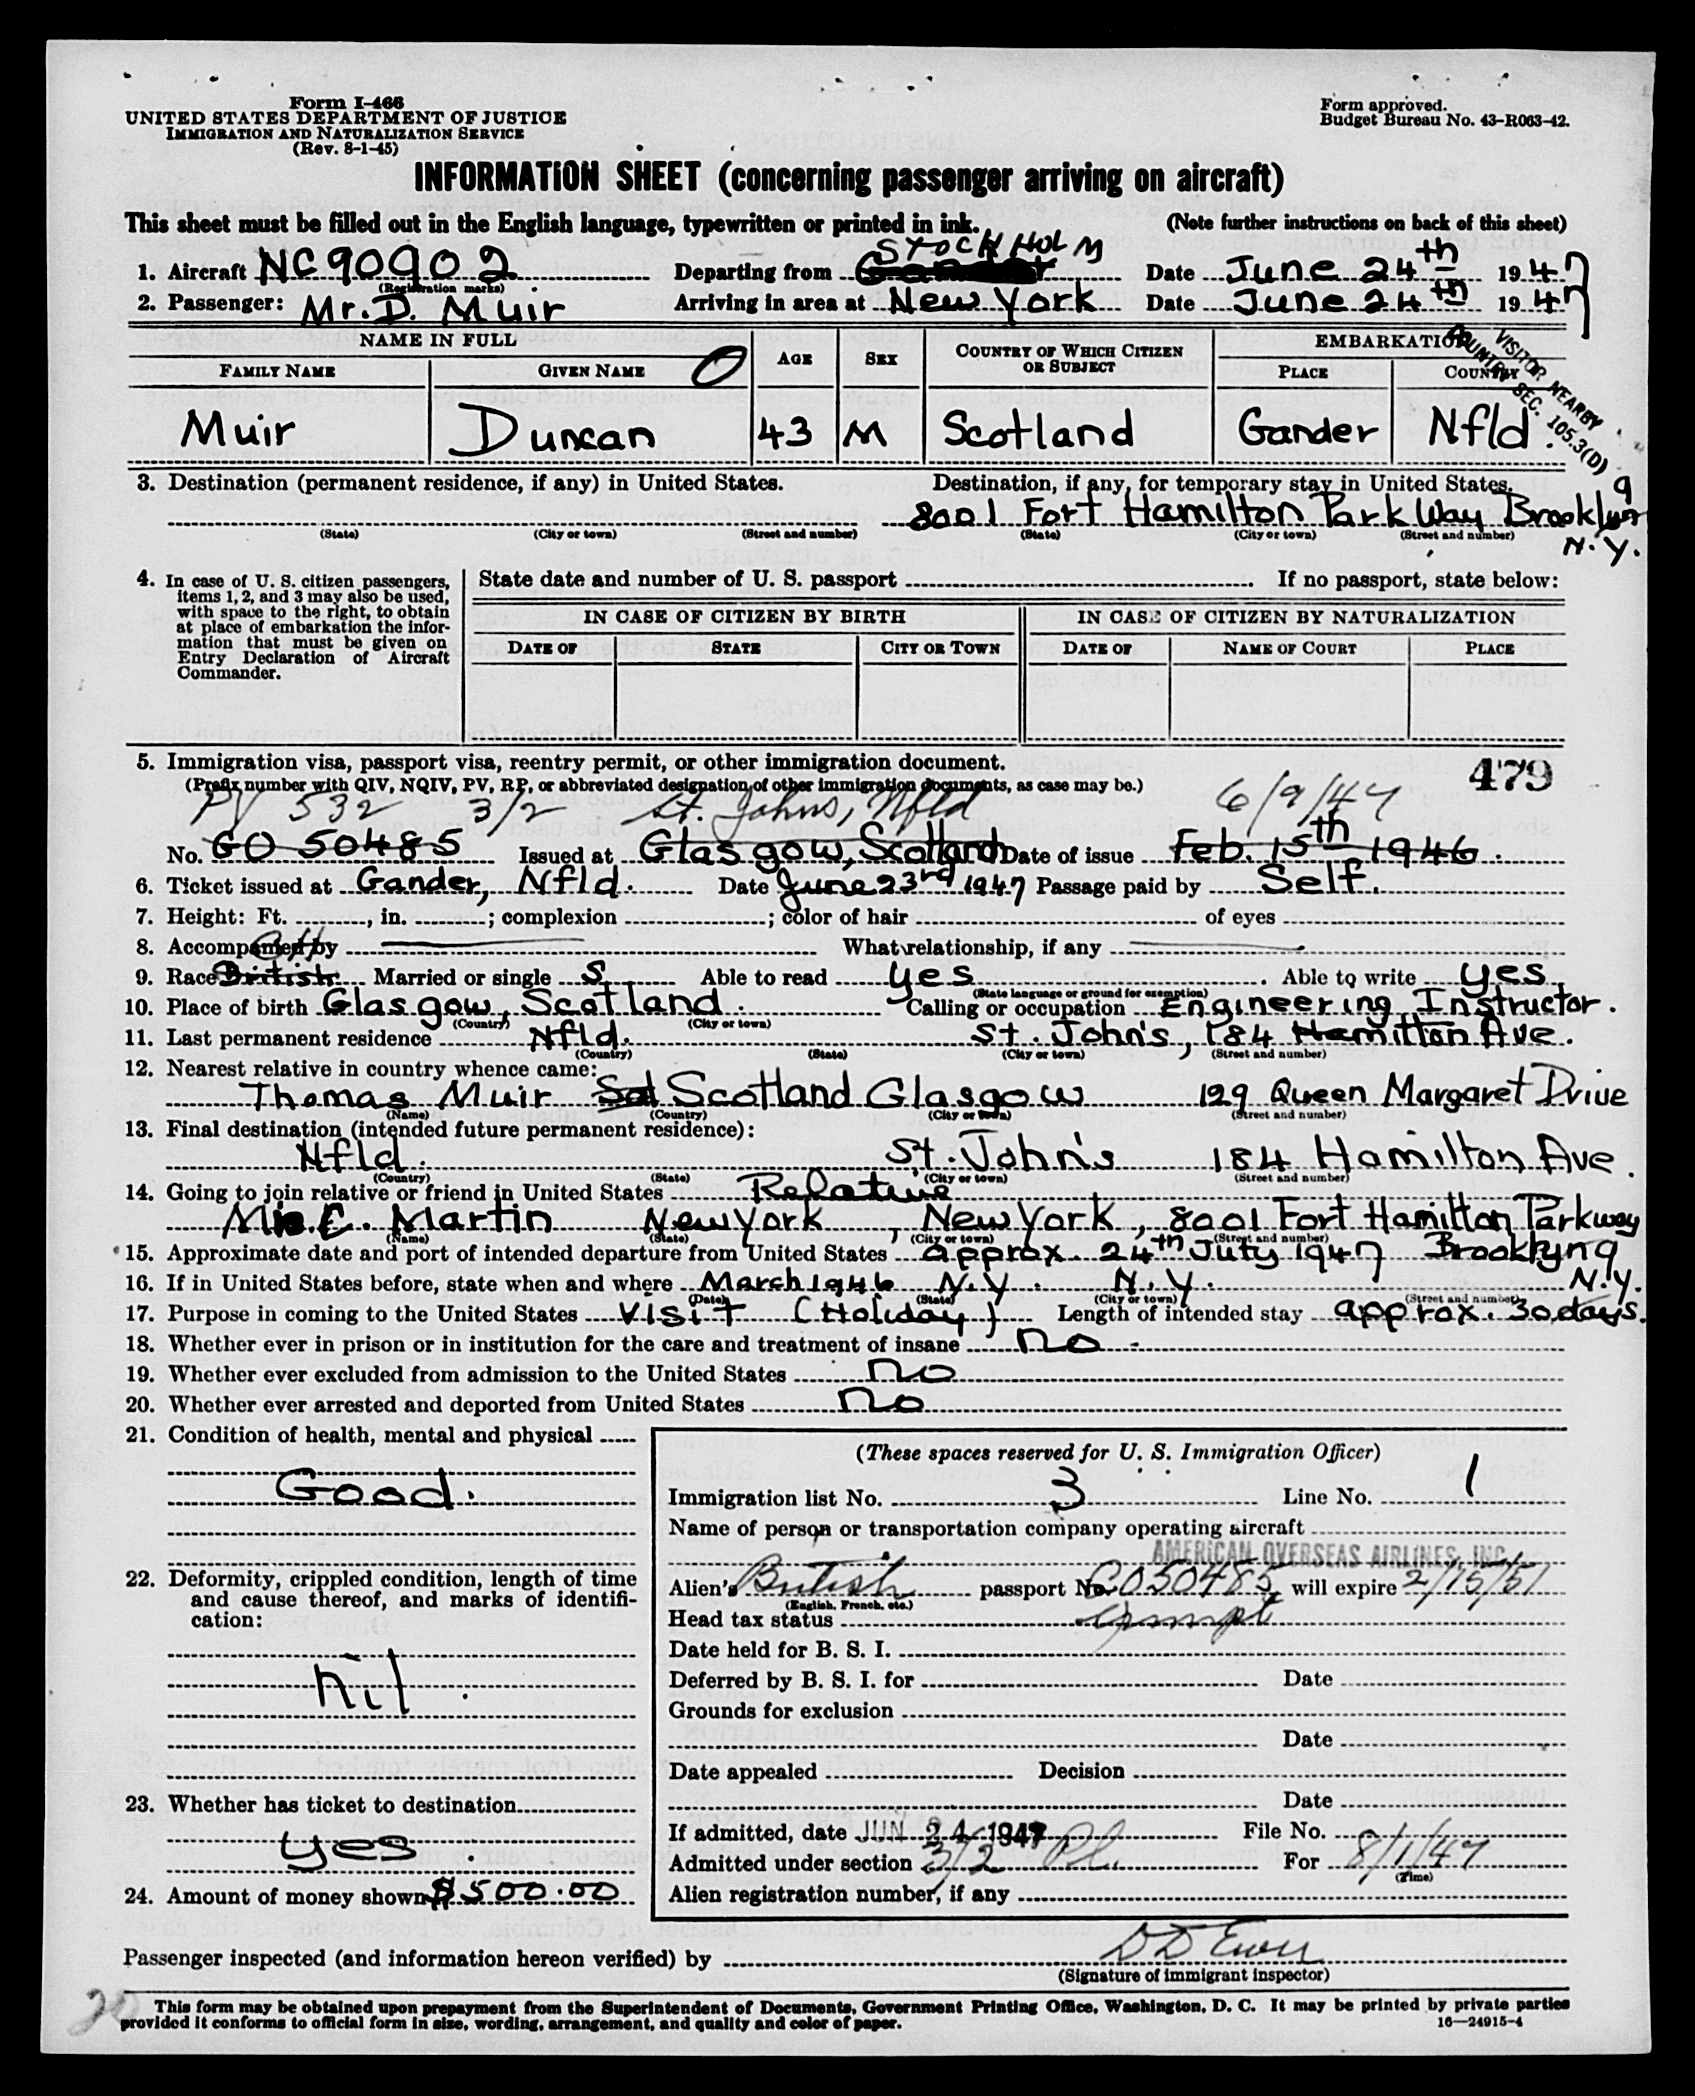 Form I-466
UNITED STATES DEPARTMENT OF JUSTICE
IMMIGRATION AND NATURALIZATION SERVICE
(Rev. 8-1-45)
Form approved.
Budget Bureau No. 43-R063-42.
INFORMATION SHEET (concerning passenger arriving on aircraft)
This sheet must be filled out in the English language, typewritten or printed in ink. (Note further instructions on back of this sheet)
STOCKHOLM
1. Aircraft NC90902 Departing from Gander Date June 24th 1947
(Registration marks)
2. Passenger: Mr. D. Muir Arriving in area at New York Date June 24th 1947
NAME IN FULL AGE SEX COUNTRY OF WHICH CITIZEN OR SUBJECT EMBARKATION
FAMILY NAME GIVEN NAME PLACE COUNTRY
VISITOR NEARBY
COUNTRY SEC. 105.3(D)9
Muir Duncan 43 M Scotland Gander Nfld.
3. Destination (permanent residence, if any) in United States. Destination, if any, for temporary stay in United States.
8001 Fort Hamilton ParkWay Brooklyn
(State) (City or town) (Street and number) (State) (City or town) (Street and number)
N.Y.
4. In case of U. S. citizen passengers, items 1, 2, and 3 may also be used, with space to the right, to obtain at place of embarkation the information that must be given on Entry Declaration of Aircraft Commander.
State date and number of U. S. passport If no passport, state below:
IN CASE OF CITIZEN BY BIRTH IN CASE OF CITIZEN BY NATURALIZATION
DATE OF STATE CITY OR TOWN DATE OF NAME OF COURT PLACE
5. Immigration visa, passport visa, reentry permit, or other immigration document. 479
(Prefix number with QIV, NQIV, PV, RP, or abbreviated designation of other immigration documents, as case may be.)
PV 532 3/2 St. Johns, Nfld 6/9/47
No. GO 50485 Issued at Glasgow, Scotland Date of issue Feb. 15th 1946.
6. Ticket issued at Gander, Nfld. Date June 23rd 1947 Passage paid by Self.
7. Height: Ft. , in. ; complexion ; color of hair of eyes
8. Accompanied by What relationship, if any
9. Race British Married or single S Able to read yes . Able to write yes
(State language or ground for exemption)
10. Place of birth Glasgow, Scotland. Calling or occupation Engineering Instructor.
(Country) (City or town)
11. Last permanent residence Nfld. St. John's, 184 Hamilton Ave.
(Country) (State) (City or town) (Street and number)
12. Nearest relative in country whence came:
Thomas Muir Scotland Glasgow 129 Queen Margaret Drive
(Name) (Country) (City or town) (Street and number)
13. Final destination (intended future permanent residence):
Nfld. St. John's 184 Hamilton Ave.
(Country) (State) (City or town) (Street and number)
14. Going to join relative or friend in United States Relative
C. Martin New York, New York, 8001 Fort Hamilton Parkway
(Name) (State) (City or town) (Street and number)
15. Approximate date and port of intended departure from United States approx. 24th July 1947 Brooklyn
N.Y.
16. If in United States before, state when and where March 1946 N.Y. N.Y.
(Date) (State) (City or town) (Street and number)
17. Purpose in coming to the United States Visit (Holiday) Length of intended stay approx. 30 days.
18. Whether ever in prison or in institution for the care and treatment of insane no
19. Whether ever excluded from admission to the United States no
20. Whether ever arrested and deported from United States no
21. Condition of health, mental and physical
Good.
22. Deformity, crippled condition, length of time and cause thereof, and marks of identification:
nil.
23. Whether has ticket to destination
yes.
24. Amount of money shown $500.00
(These spaces reserved for U. S. Immigration Officer)
Immigration list No. 3 Line No. 1
Name of person or transportation company operating aircraft
AMERICAN OVERSEAS AIRLINES, INC.
Alien's British passport No. C050485 will expire 2/15/51
(English, French, etc.)
Head tax status exempt
Date held for B. S. I.
Deferred by B. S. I. for Date
Grounds for exclusion
Date
Date appealed Decision
Date
If admitted, date JUN 24 1947 File No.
Admitted under section 3/2 For 8/1/47
(Time)
Alien registration number, if any
Passenger inspected (and information hereon verified) by
(Signature of immigrant inspector)
This form may be obtained upon prepayment from the Superintendent of Documents, Government Printing Office, Washington, D. C. It may be printed by private parties
provided it conforms to official form in size, wording, arrangement, and quality and color of paper. 16—24915-4